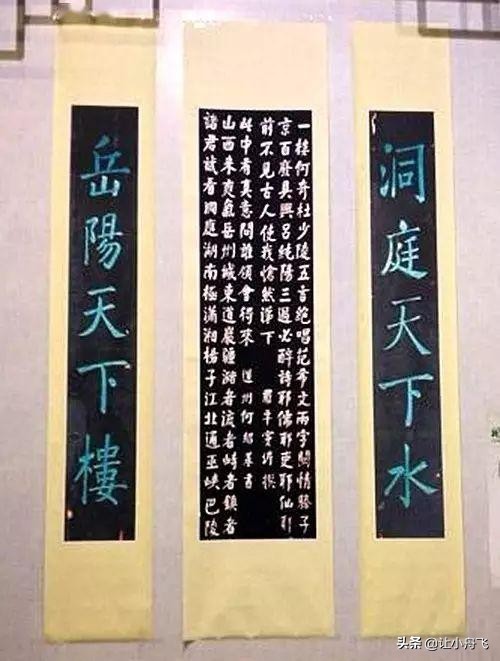 洞庭天下水
一樓何奇杜少陵五言絕唱范希文兩字關情滕子
京百廢具興呂純陽三過必醉詩耶儒耶吏耶仙耶
前不見古人使我愴然涕下 羅平竇垿撰
諸君試看洞庭湖南極瀟湘揚子江北通巫峽巴陵
山西來爽氣岳州城東道巖疆瀦者流者峙者鎮者
此中有真意問誰領會得來 道州何紹基書
岳陽天下樓
头条 @让小舟飞